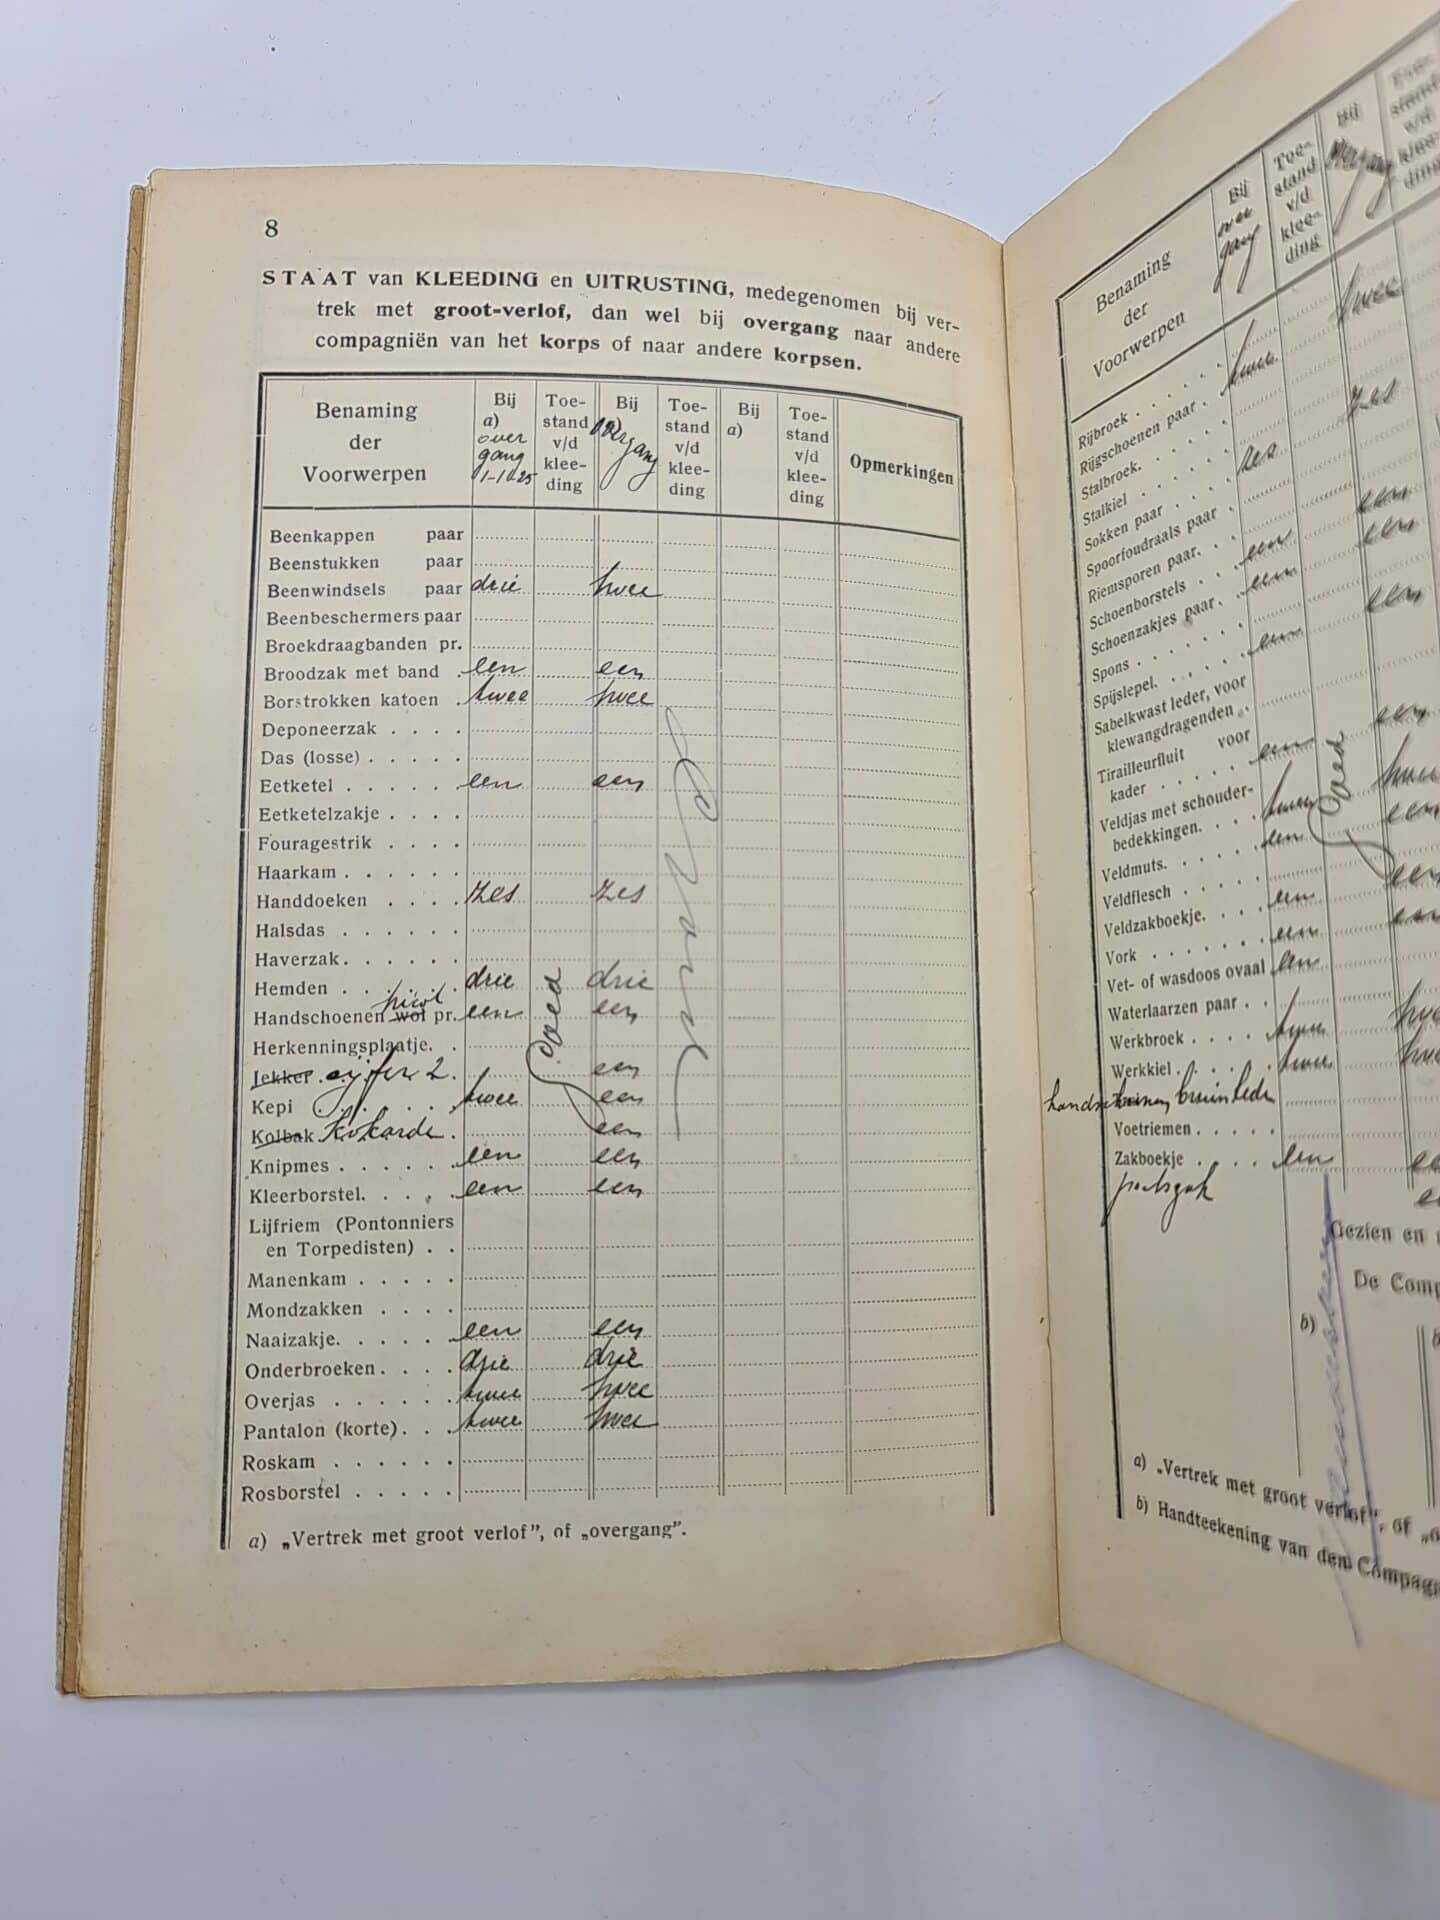 8
STAAT van KLEEDING en UITRUSTING, medegenomen bij ver-
trek met groot-verlof, dan wel bij overgang naar andere
compagniën van het korps of naar andere korpsen.
Benaming der Voorwerpen | Bij a) over gang 1-10-25 | Toe-stand v/d klee-ding | Bij a) overgang | Toe-stand v/d klee-ding | Bij a) | Toe-stand v/d klee-ding | Opmerkingen
Beenkappen paar
Beenstukken paar
Beenwindsels paar drie twee
Beenbeschermers paar
Broekdraagbanden pr.
Broodzak met band . een een
Borstrokken katoen . twee twee
Deponeerzak . . . .
Das (losse) . . . . .
Eetketel . . . . . . een een
Eetketelzakje . . . .
Fouragestrik . . . .
Haarkam . . . . . .
Handdoeken . . . . zes zes
Halsdas . . . . . .
Haverzak . . . . . .
Hemden . . . . . . drie drie
Handschoenen wol pr. een een
Herkenningsplaatje. .
Jekker cijfer 2. een
Kepi . . . . . . twee een
Kolbak Kokarde . een
Knipmes . . . . . . een een
Kleerborstel. . . . . een een
Lijfriem (Pontonniers
en Torpedisten) . .
Manenkam . . . . .
Mondzakken . . . .
Naaizakje. . . . . . een een
Onderbroeken . . . . drie drie
Overjas . . . . . . twee twee
Pantalon (korte) . . . twee twee
Roskam . . . . . .
Rosborstel . . . . .
Goed
a) „Vertrek met groot verlof”, of „overgang”.
Benaming der Voorwerpen | Bij over gang | Toe-stand v/d klee-ding | Bij overgang | Toe-stand v/d klee-ding
Rijbroek . . . . . . twee
Rijgschoenen paar . twee
Stalbroek. . . . . .
Stalkiel . . . . . . zes
Sokken paar . . . . zes
Spoorfoudraals paar .
Riemsporen paar. . . een
Schoenborstels . . . een een
Schoenzakjes paar. . een
Spons . . . . . .
Spijslepel. . . . . . een een
Sabelkwast leder, voor
klewangdragenden .
Tirailleurfluit voor
kader . . . . . een een
Veldjas met schouder-
bedekkingen. . . . twee twee
Veldmuts. . . . . . een een
Veldflesch . . . . .
Veldzakboekje. . . . een een
Vork . . . . . . een een
Vet- of wasdoos ovaal een
Waterlaarzen paar . .
Werkbroek . . . . twee
Werkkiel. . . . . . twee
handschoenen bruin leder
Voetriemen . . . . .
Zakboekje . . . . een
Goed
Gezien en
De Comp
b)
a) „Vertrek met groot verlof”, of „o
b) Handteekening van den Compag